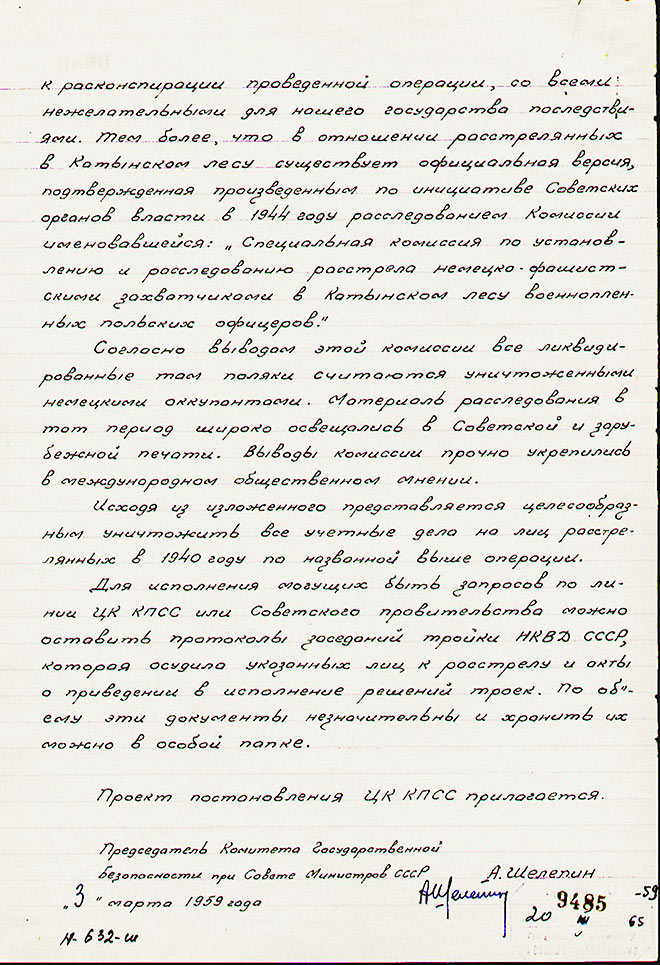 к расконспирации проведенной операции, со всеми
нежелательными для нашего государства последстви-
ями. Тем более, что в отношении расстрелянных
в Катынском лесу существует официальная версия,
подтвержденная произведенным по инициативе Советских
органов власти в 1944 году расследованием Комиссии
именовавшейся: „Специальная комиссия по установ-
лению и расследованию расстрела немецко-фашист-
скими захватчиками в Катынском лесу военноплен-
ных польских офицеров."
Согласно выводам этой комиссии все ликвиди-
рованные там поляки считаются уничтоженными
немецкими оккупантами. Материалы расследования в
тот период широко освещались в Советской и зару-
бежной печати. Выводы комиссии прочно укрепились
в международном общественном мнении.
Исходя из изложенного представляется целесообраз-
ным уничтожить все учетные дела на лиц расстре-
лянных в 1940 году по названной выше операции.
Для исполнения могущих быть запросов по ли-
нии ЦК КПСС или Советского правительства можно
оставить протоколы заседаний тройки НКВД СССР,
которая осудила указанных лиц к расстрелу и акты
о приведении в исполнение решений троек. По об"-
ему эти документы незначительны и хранить их
можно в особой папке.
Проект постановления ЦК КПСС прилагается.
Председатель Комитета Государственной
Безопасности при Совете Министров СССР А. Шелепин
АШелепин
„3" марта 1959 года
20 9485 -59
65
Н-632-ш